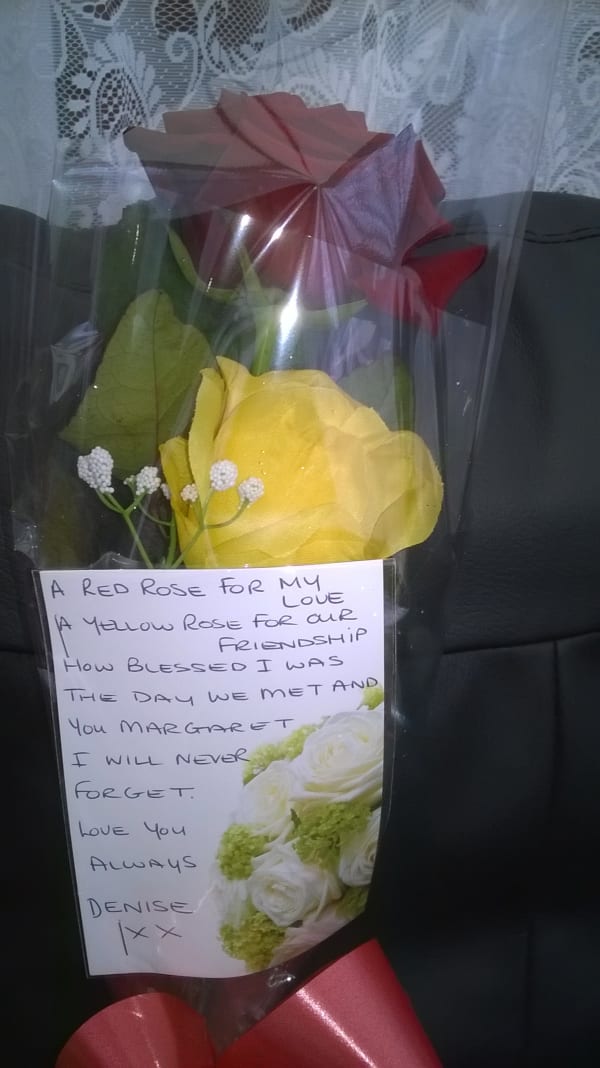 A RED ROSE FOR MY
LOVE
A YELLOW ROSE FOR OUR
FRIENDSHIP
HOW BLESSED I WAS
THE DAY WE MET AND
YOU MARGARET
I WILL NEVER
FORGET.
LOVE YOU
ALWAYS
DENISE
XX